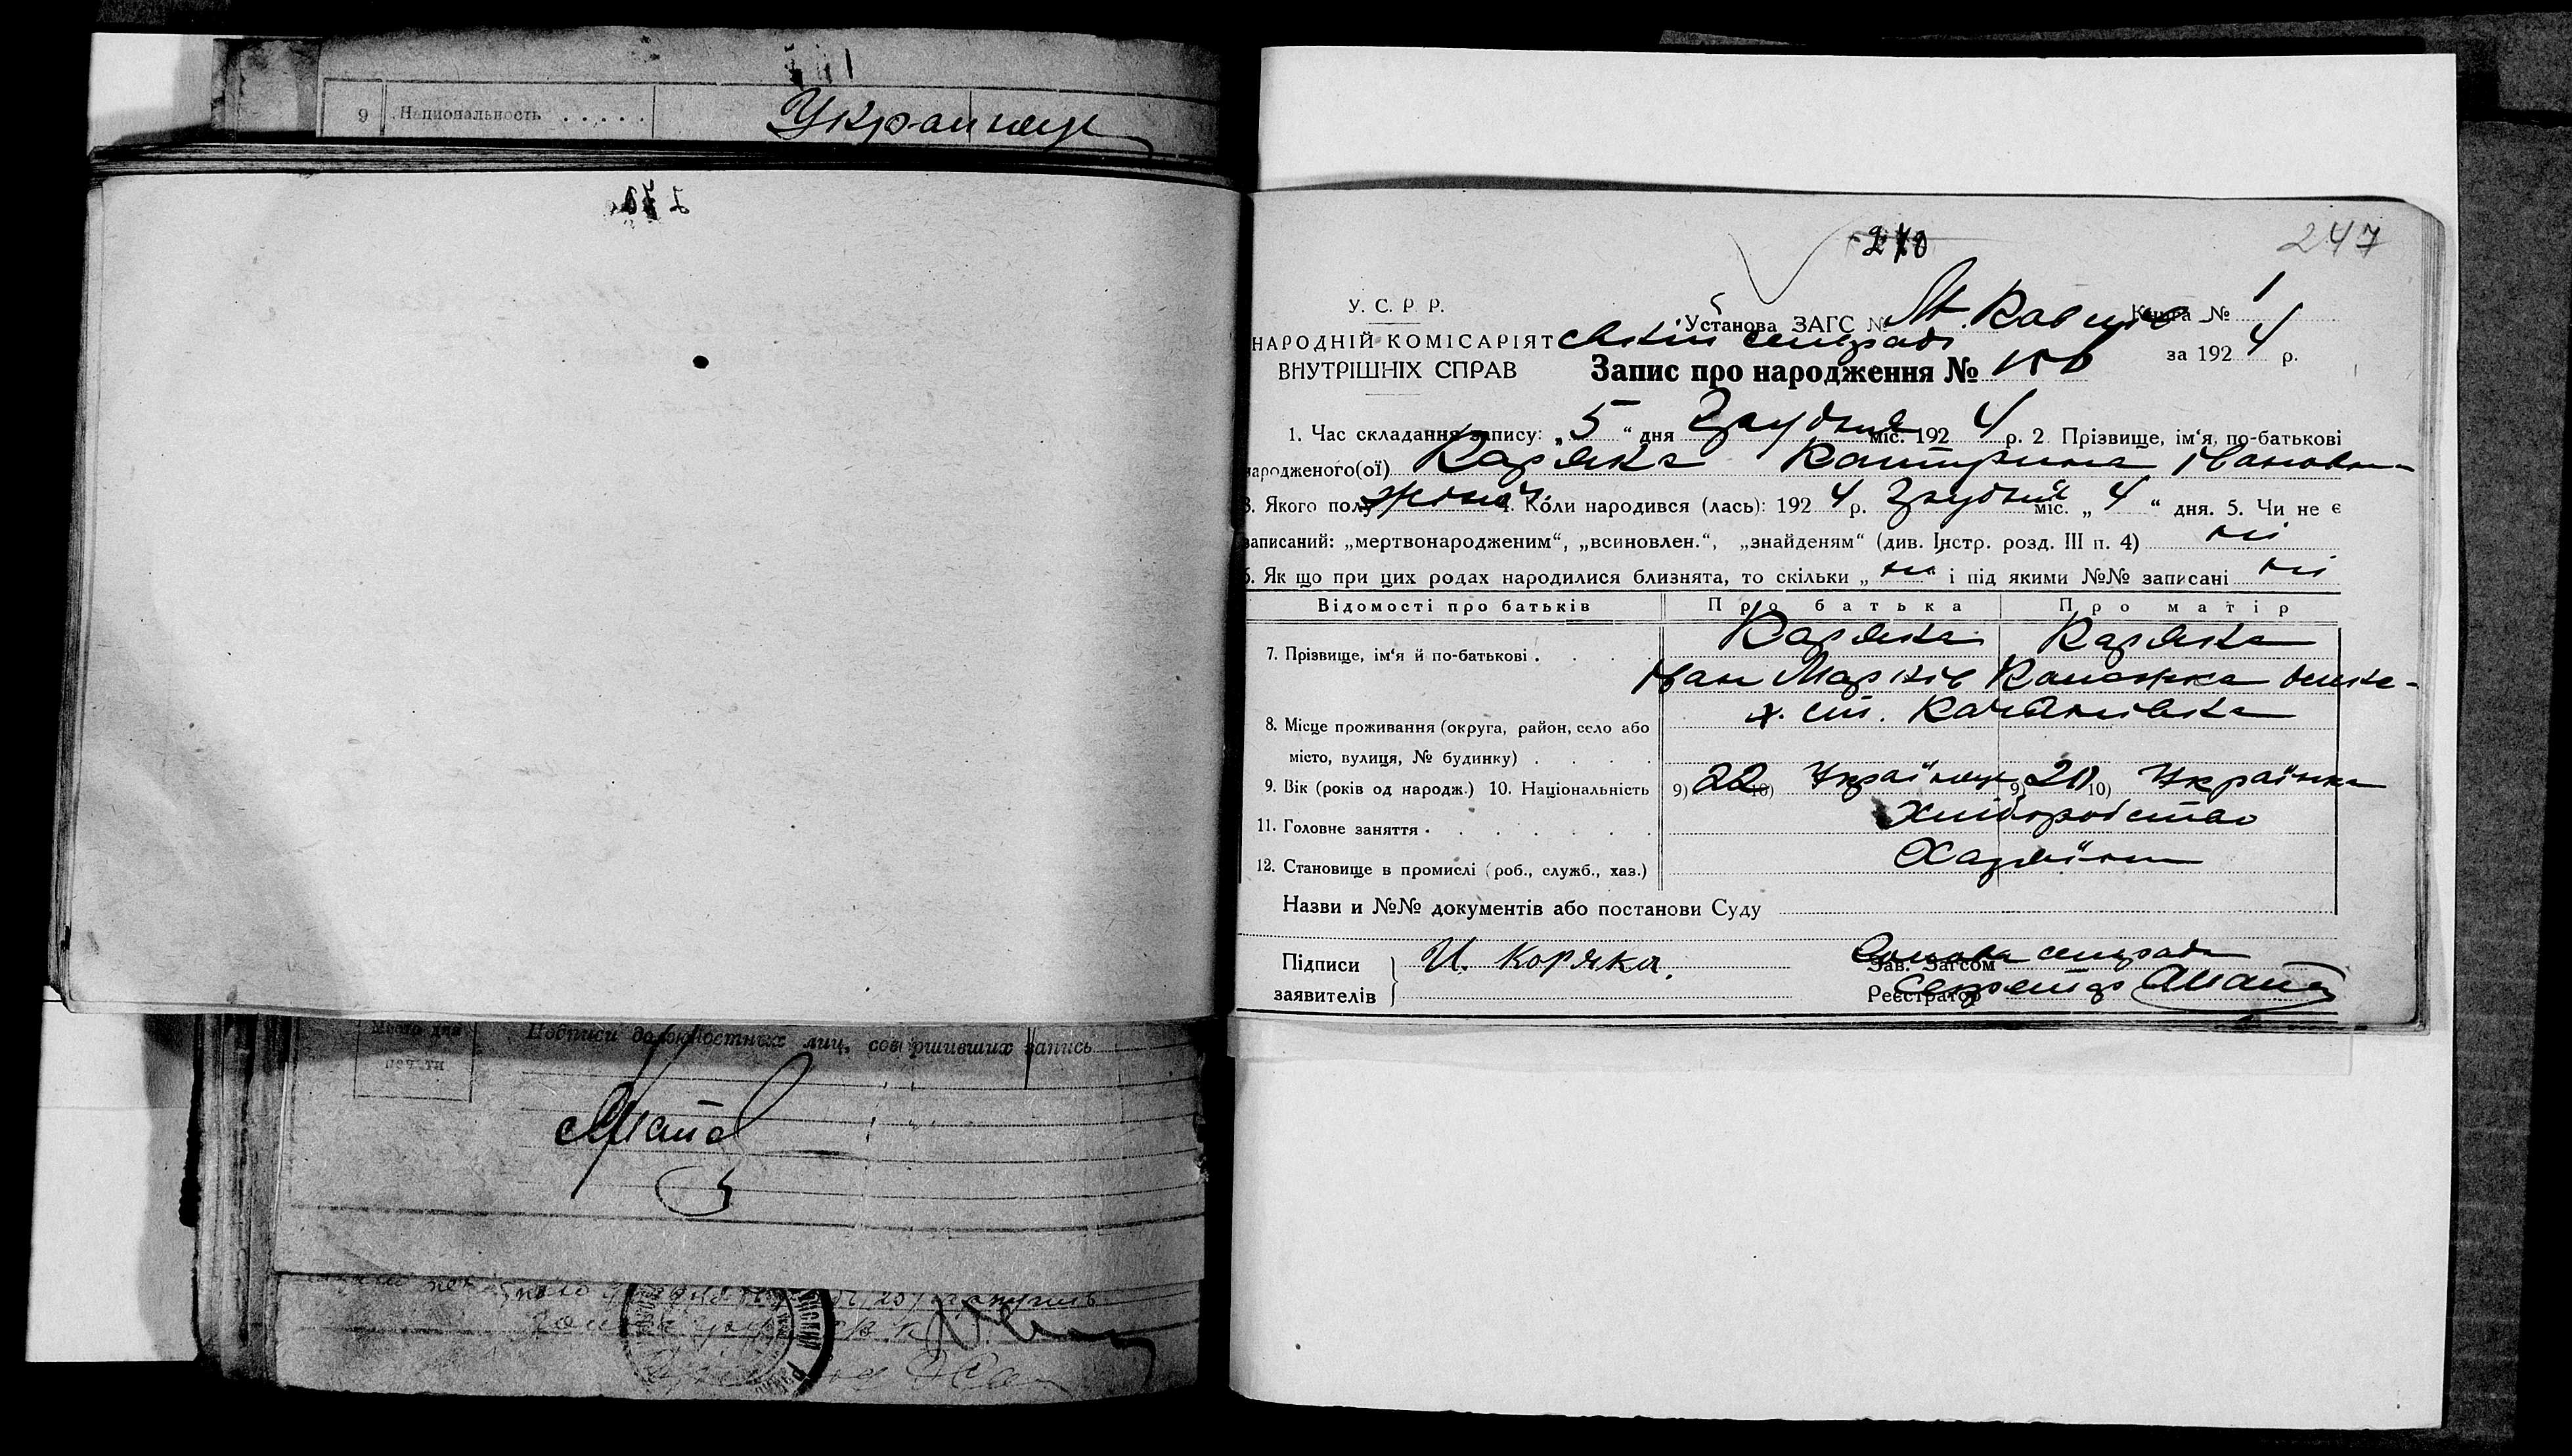 9 Национальность . . . . . Украинец
270
247
У. С. Р. Р.
Установа ЗАГС № Книга № 1
НАРОДНІЙ КОМІСАРІЯТ сільраді
ВНУТРІШНІХ СПРАВ
за 1924 р.
Запис про народження №
1. Час складання запису: „5“ дня Грудня міс. 1924 р. 2 Прізвище, ім'я, по-батькові
народженого(ої) Каряка Катирина Івановна
3. Якого полу жіноч. 4. Коли народився (лась): 1924 р. Грудня міс. „4“ дня. 5. Чи не є
записаний: „мертвонародженим“, „всиновлен.“, „знайденям“ (див. Інстр. розд. III п. 4) ні
6. Як що при цих родах народилися близнята, то скільки „ні“ і під якими №№ записані ні
Відомості про батьків Про батька Про матір
7. Прізвище, ім'я й по-батькові . . . . Каряка Каряка
Іван Марків
8. Місце проживання (округа, район, село або х. Качанівка
місто, вулиця, № будинку) . . . .
9. Вік (років од народж.) 10. Національність 9) 22 10) Українец 9) 20 10) Українка
11. Головне заняття . . . . . . . Хліборобство
12. Становище в промислі (роб., служб., хаз.) Хазяїни
Назви и №№ документів або постанови Суду
Підписи И. Коряка. Зав. Загсом Голова сільради
заявителів Реєстратор Секретар
Место для печати
Подписи должностных лиц, совершивших запись